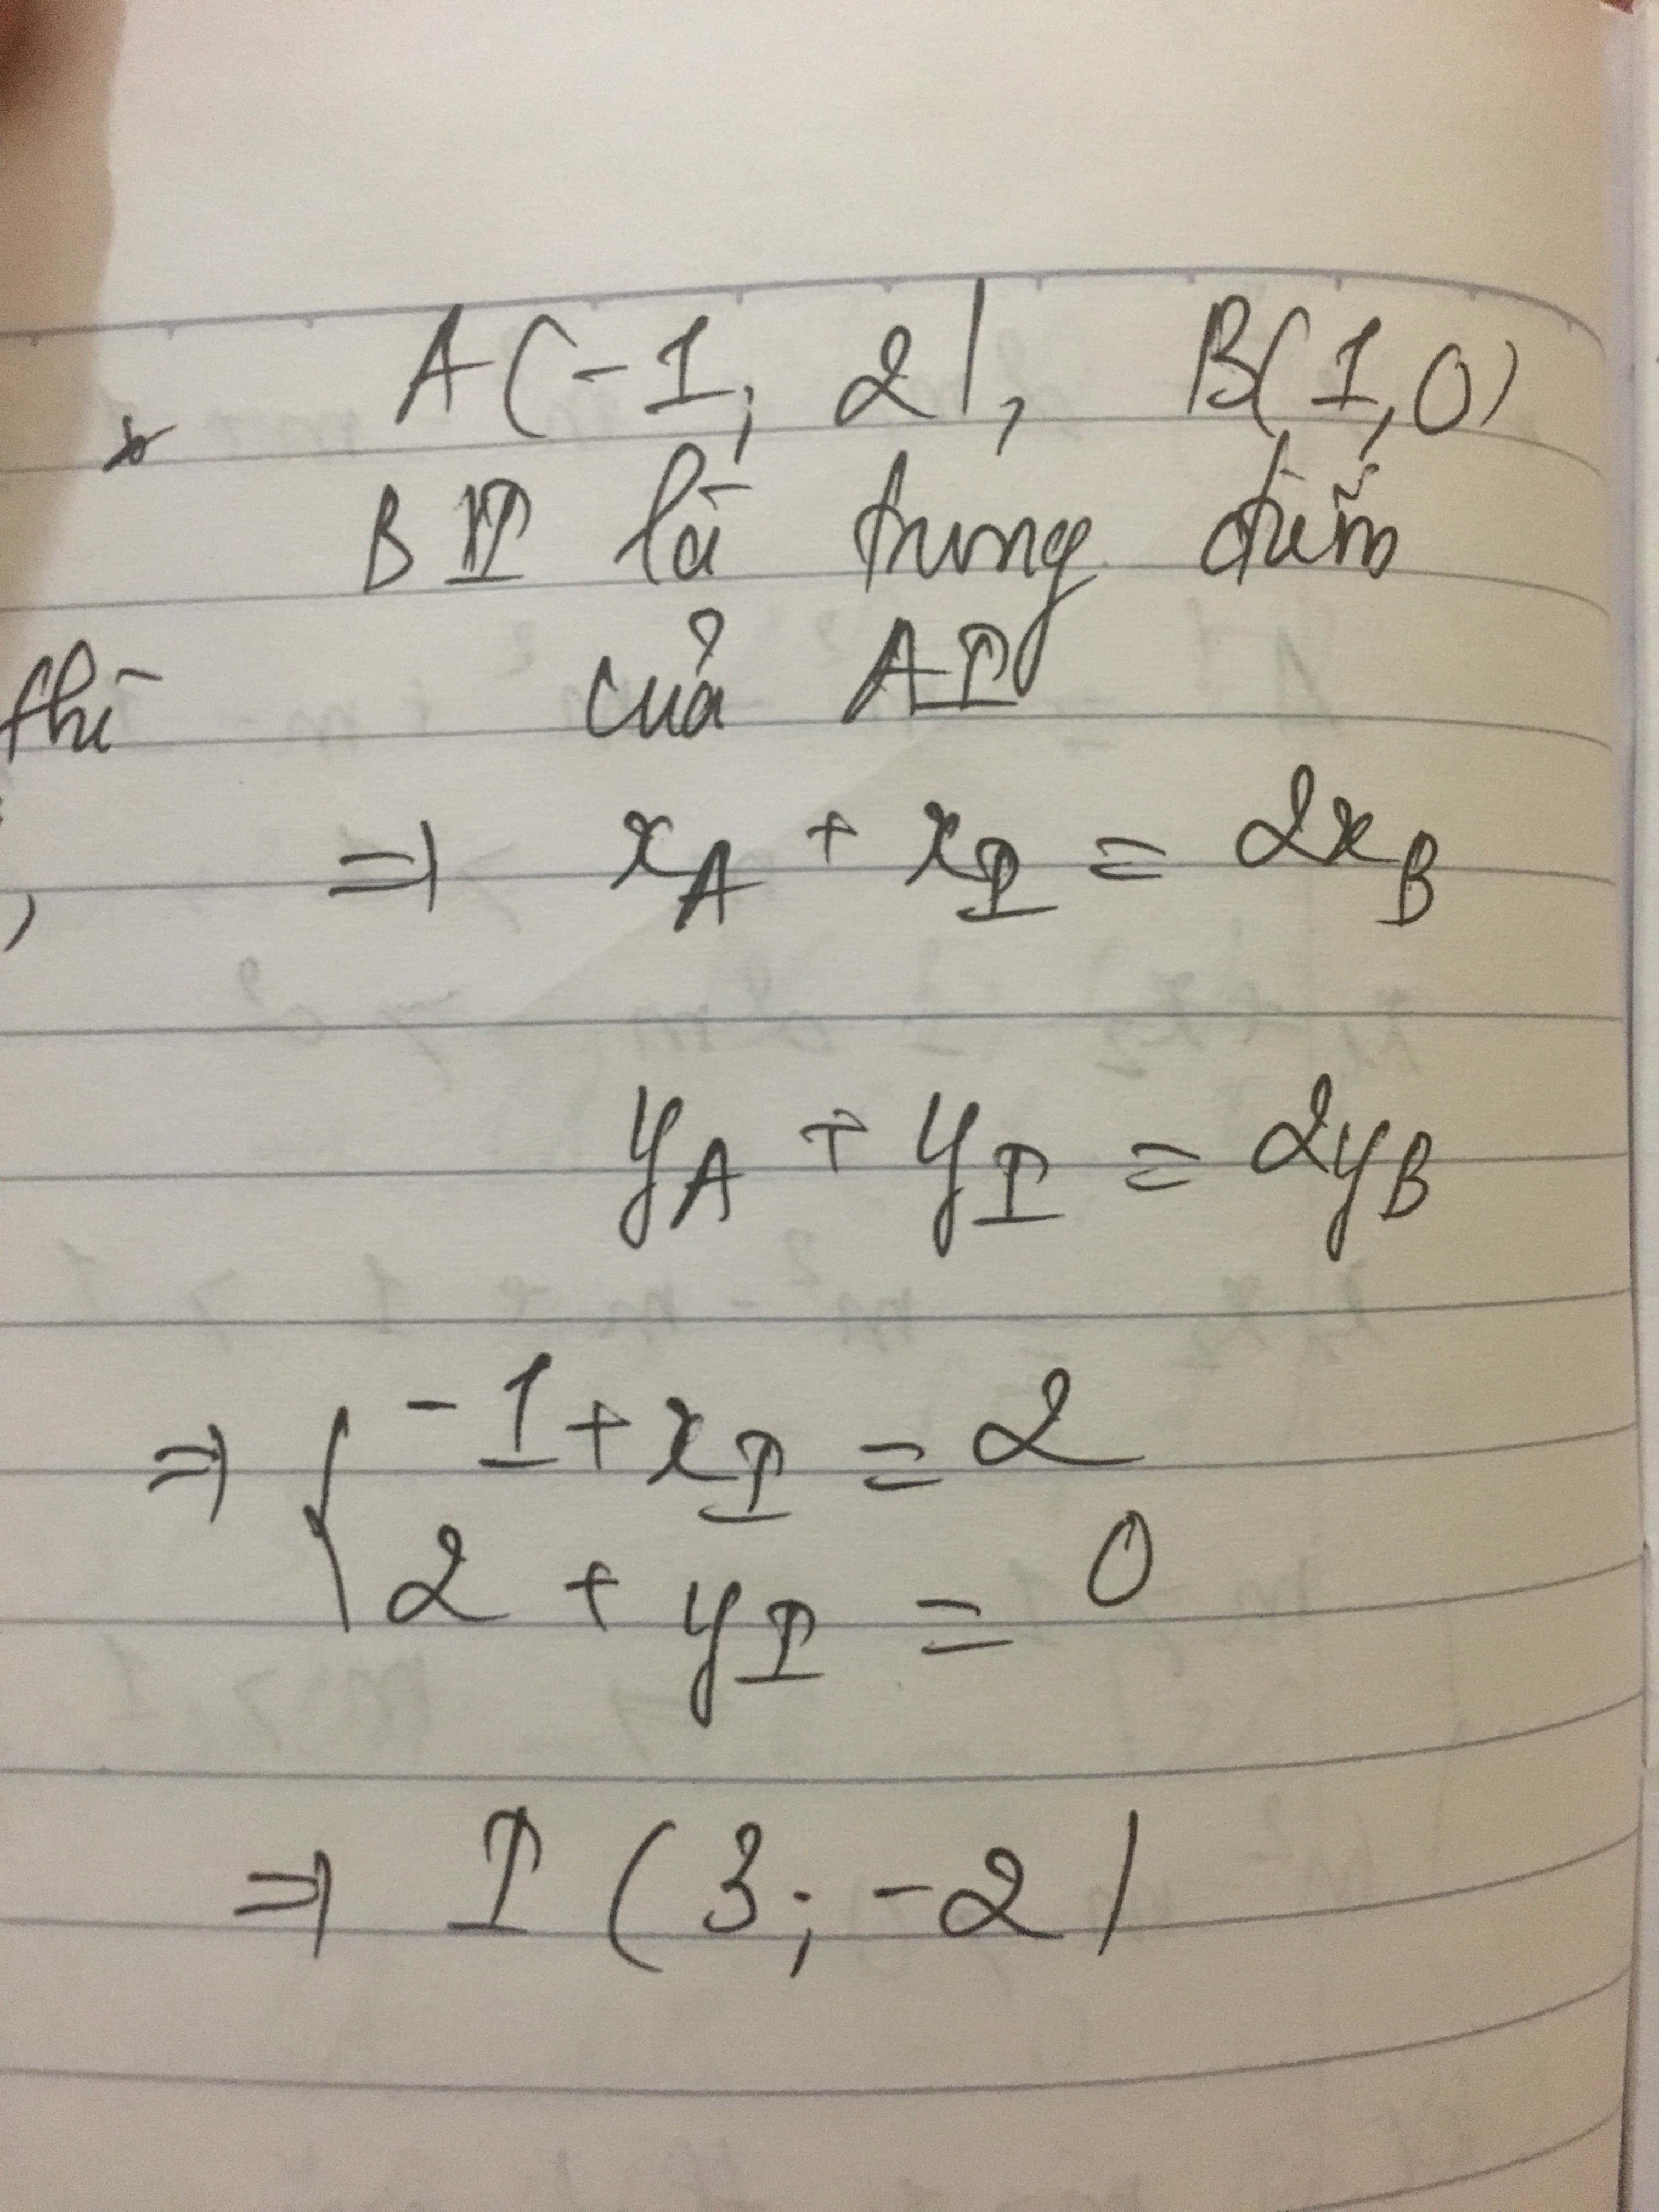 * A(-1; 2), B(1,0)
B I là trung điểm
thì của AI
⇒ x_A + x_I = 2x_B
y_A + y_I = 2y_B
⇒ { -1 + x_I = 2
2 + y_I = 0
⇒ I (3; -2)